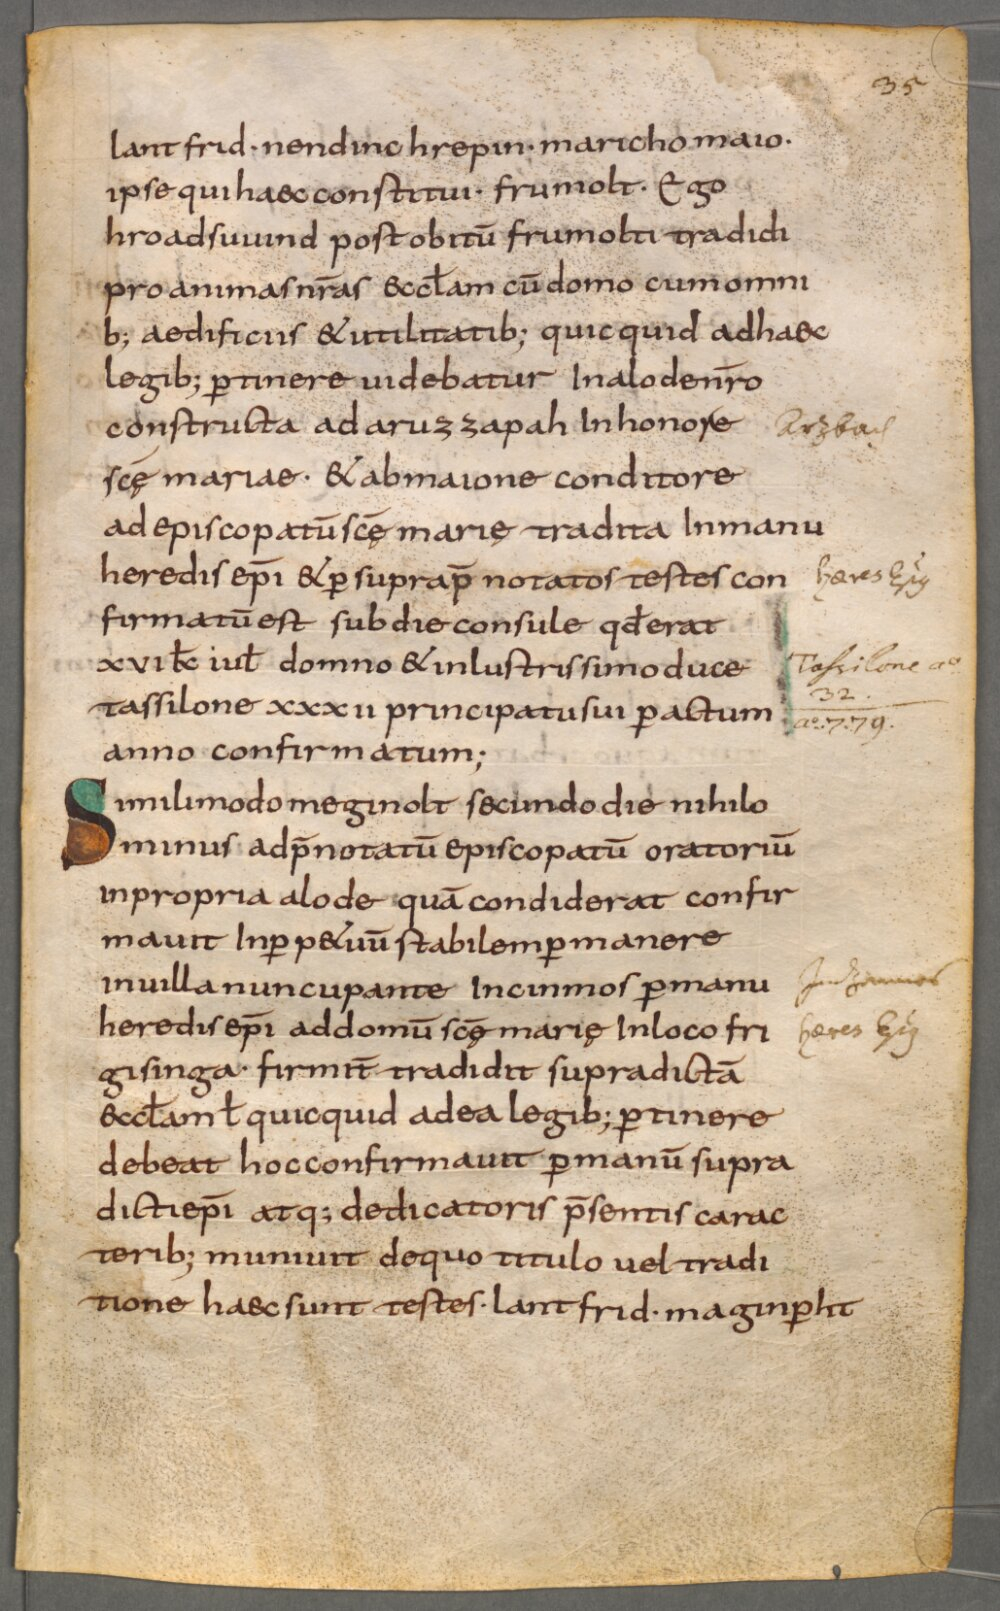 35
lantfrid · nendinc hrepin · maricho maio ·
ipse qui haec constitui · frumolt · Ego
hroadsuuind post obitū frumolti tradidi
pro animas nr̄as &ccłam cū domo cum omni
b; aedificiis & utilitatib; quicquid ad haec
legib; ꝑtinere uidebatur In alode nr̄o
constructa ad aruzzapah In honore
Arzbach
scę̄ mariae · & ab maione conditore
ad episcopatū scę̄ marię tradita In manu
heredis ep̄i & ꝑ suprap̄notatos testes con
hæres
firmatū est sub die consule qđ erat
xvi kł iuł domno & inlustrissimo duce
Tassilone aº
tassilone xxxii principatus sui peractum
32.
aº. 779.
anno confirmatum;
Simili modo meginolt secundo die nihilo
minus ad p̄notatū episcopatū oratoriū
in propria alode quā condiderat confir
mauit In ꝑp&uū stabilem ꝑmanere
in uilla nuncupante Incinmos ꝑ manu
heredis ep̄i ad domū scę̄ marię In loco fri
hæres
gisinga · firmit̄ tradidit supradictā
&ccłam ł quicquid ad ea legib; ꝑtinere
debeat hoc confirmauit ꝑ manū supra
dicti ep̄i atq; dedicatoris p̄sentis carac
terib; muniuit de quo titulo uel tradi
tione haec sunt testes · lantfrid · maginꝑht